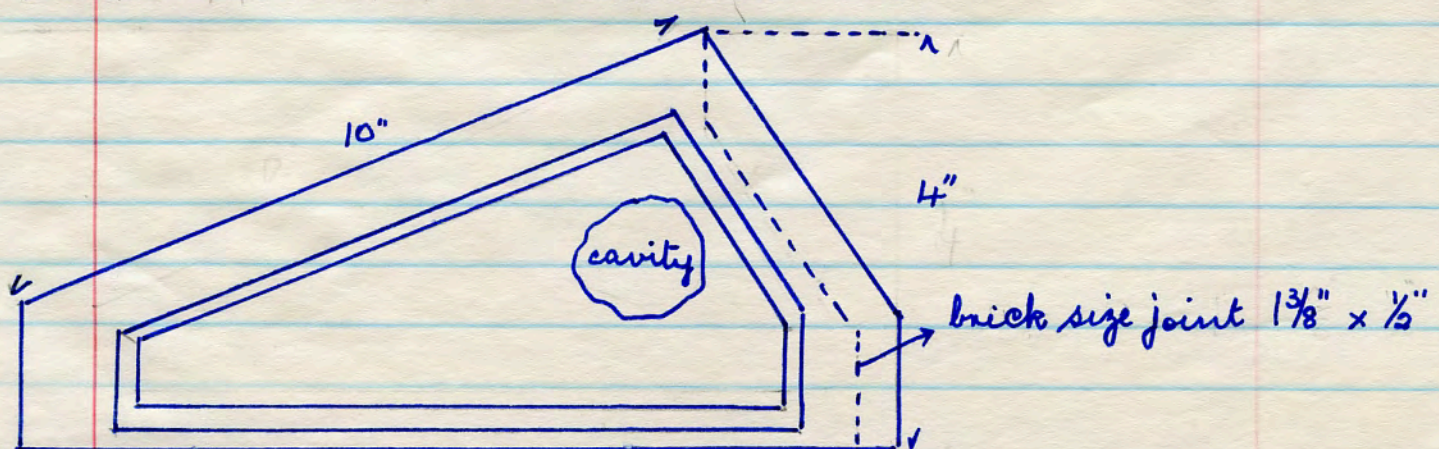 10"
4"
cavity
brick size joint 1 3/8" x 1/2"